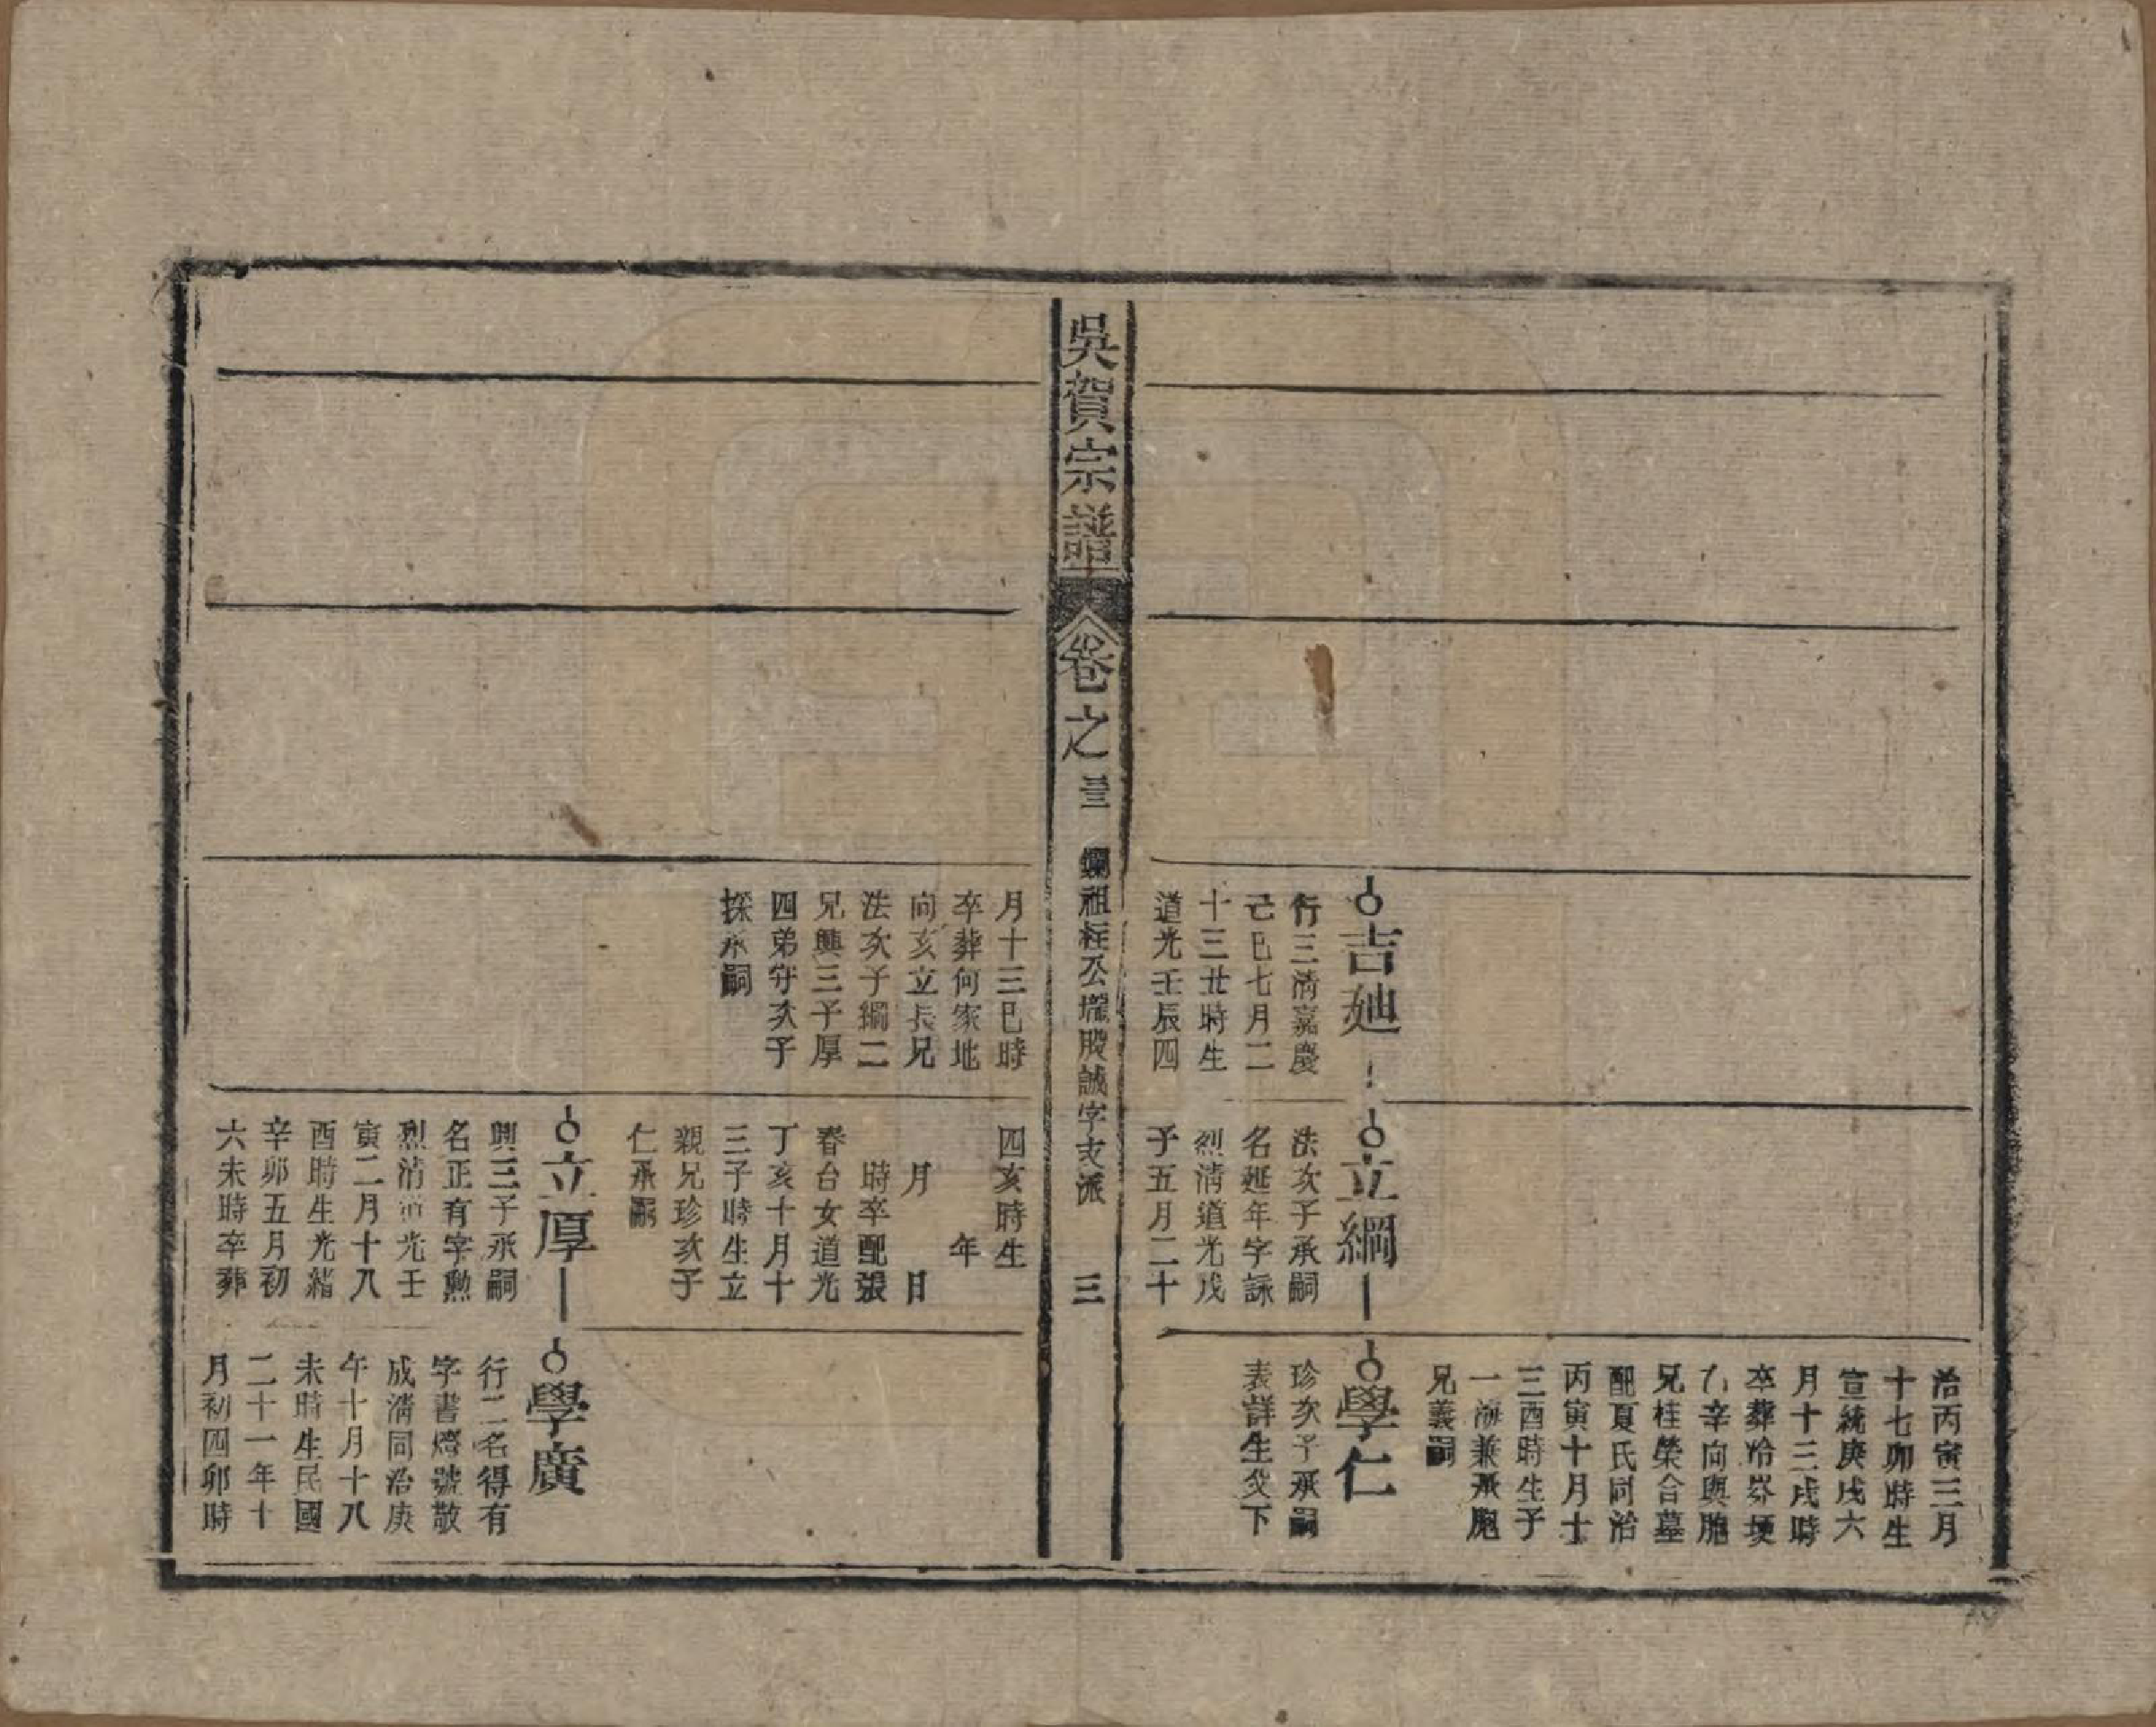 治丙寅三月
十七卯時生
宣統庚戌六
月十三戌時
卒葬冷岕埂
乃辛向與胞
兄桂榮合墓
配夏氏同治
丙寅十月十
三酉時生子
一海兼承胞
兄義嗣
吉廸
行三清嘉慶
己巳七月二
十三丑時生
道光壬辰四
立綱
法次子承嗣
名延年字詠
烈清道光戊
子五月二十
學仁
珍次子承嗣
表詳生炎下
吳賀宗譜
卷之三
祖柱公 股誠字支派
三
月十三巳時
卒葬何家地
向亥立長兄
法次子綱二
兄興三子厚
四弟守次子
採承嗣
四亥時生
年
月 日
時卒配張
春台女道光
丁亥十月十
三子時生立
親兄珍次子
仁承嗣
立厚
興三子承嗣
名正有字勲
烈清道光壬
寅二月十八
酉時生光緒
辛卯五月初
六未時卒葬
學廣
行二名得有
字書燈號敬
成清同治庚
午十月十八
未時生民國
二十一年十
月初四卯時